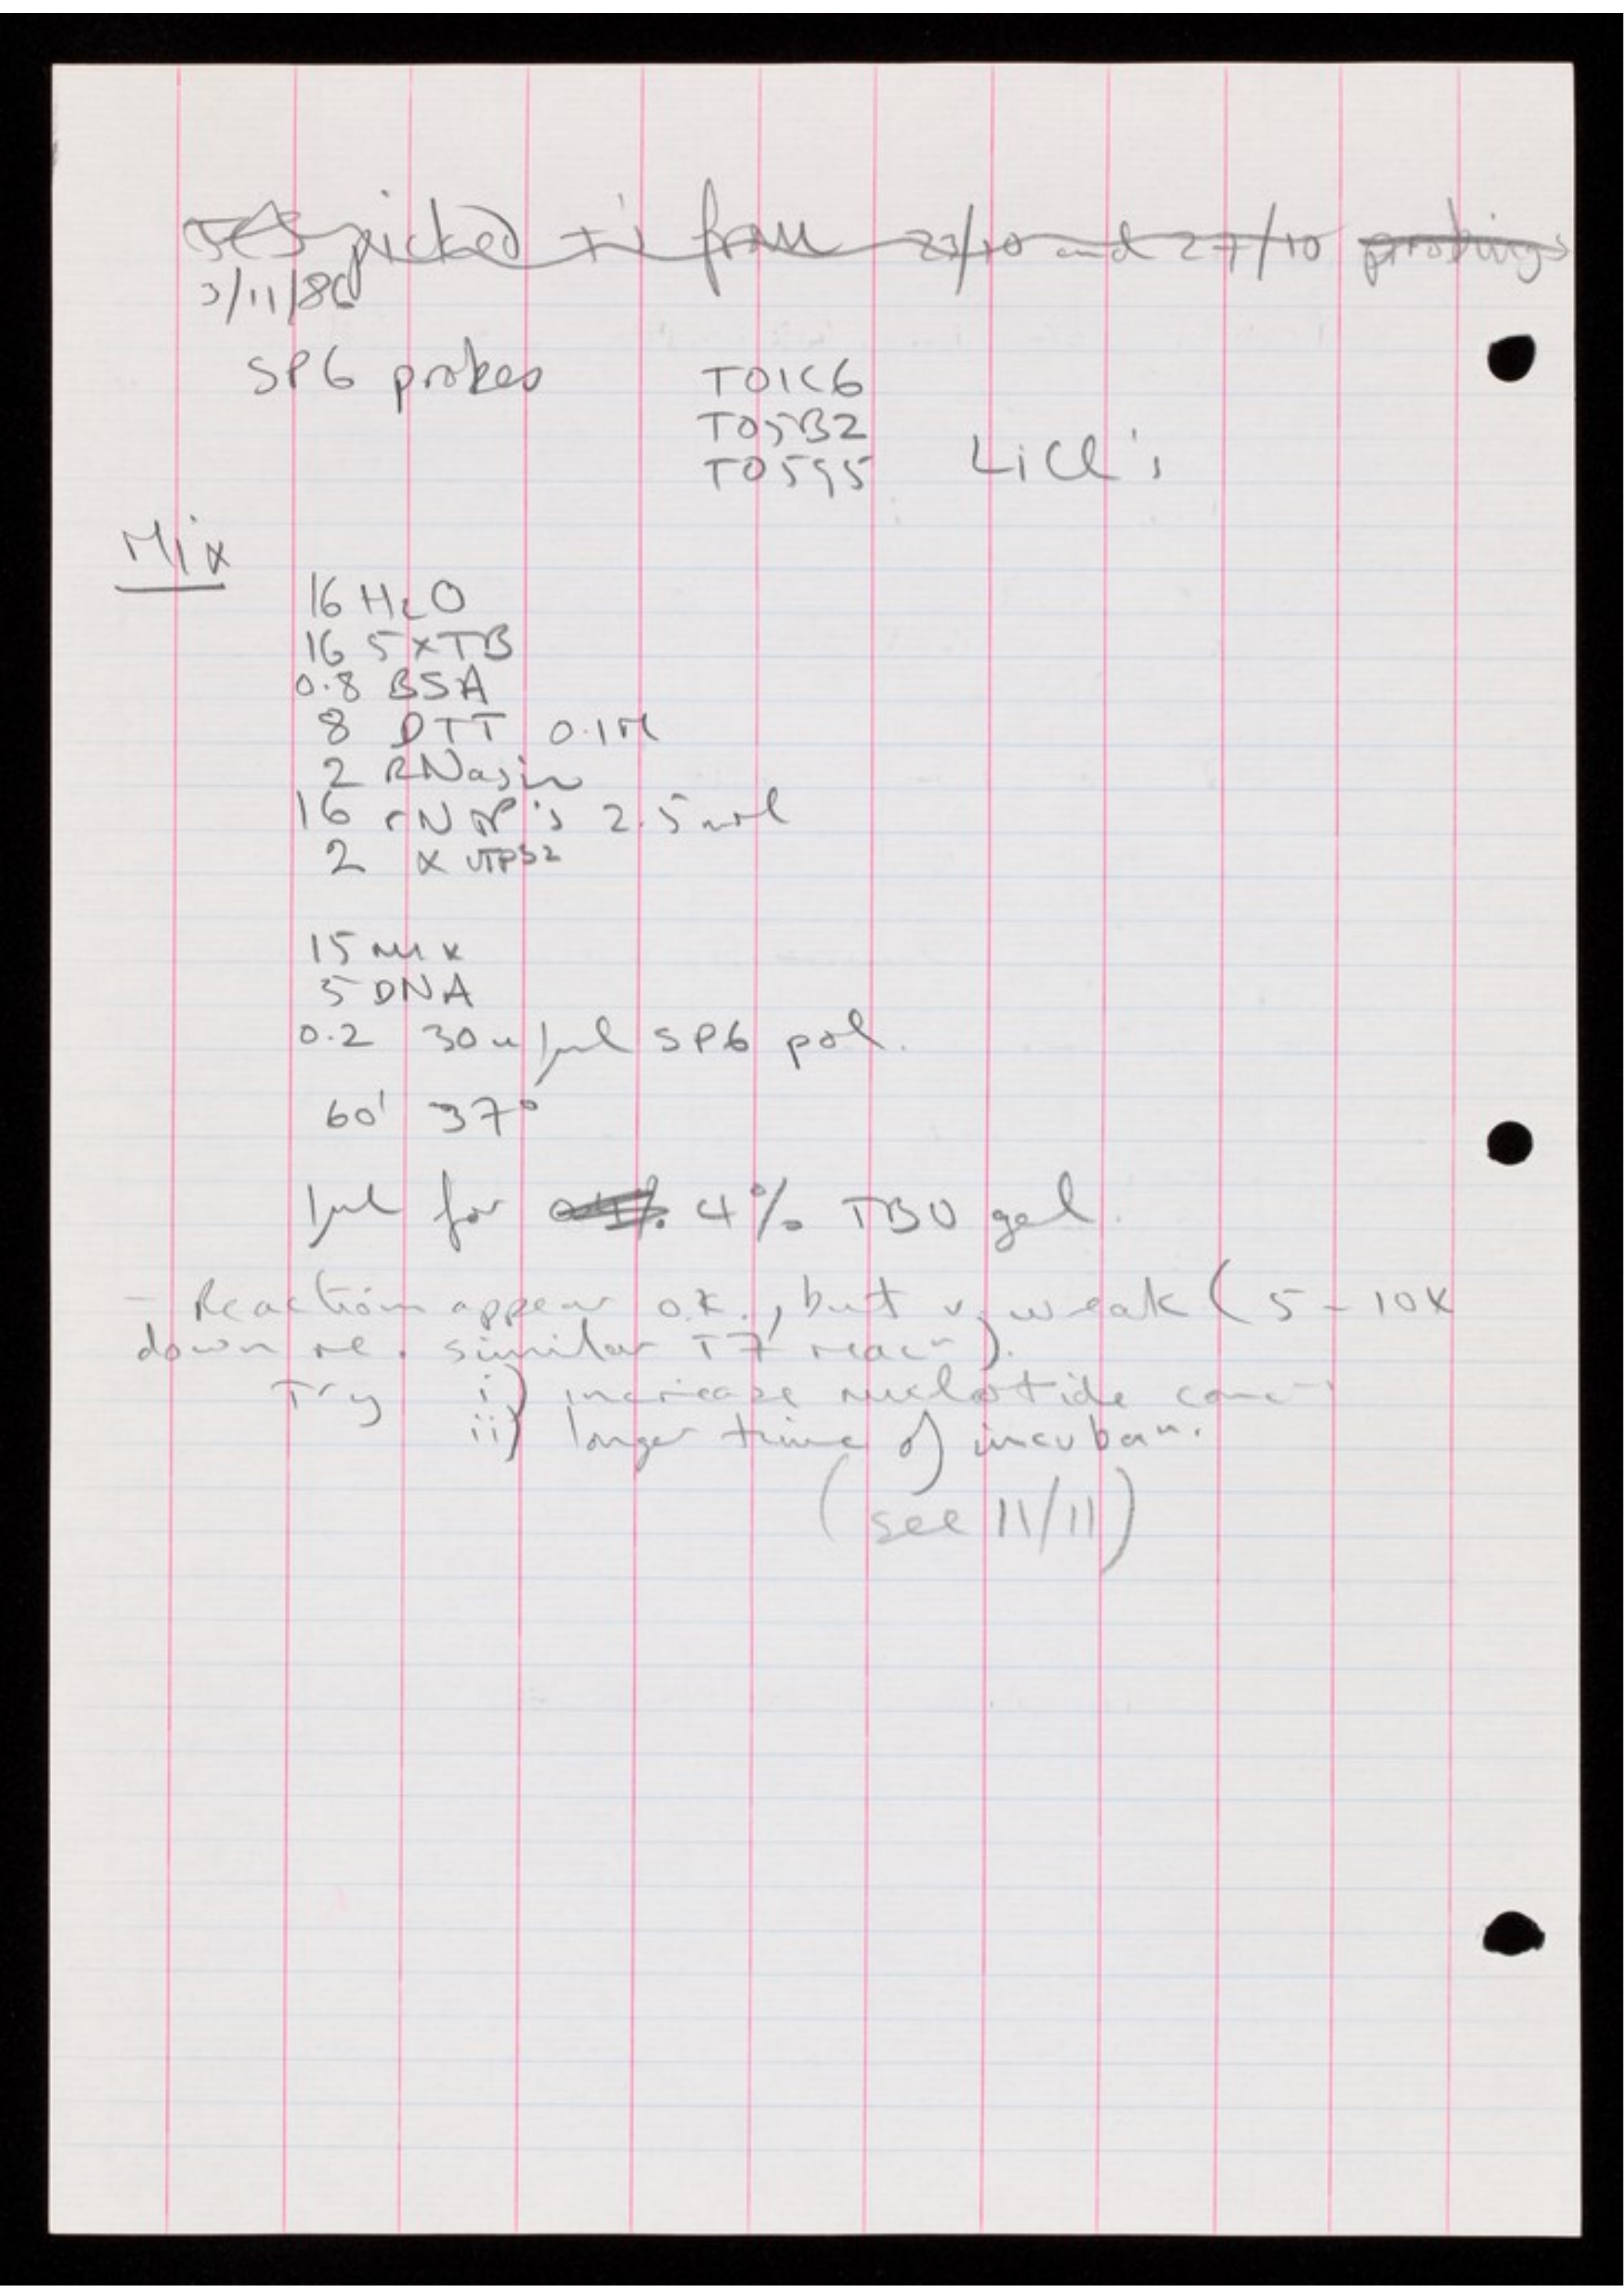 picked +'s from 23/10 and 27/10 probings
3/11/86
SP6 probes T01C6
T05B2
T05G5 LiCl's
Mix
16 H2O
16 5xTB
0.8 BSA
8 DTT 0.1M
2 RNasin
16 rNTP's 2.5
2 α UTP32
15 mix
5 DNA
0.2 30u/μl SP6 pol.
60' 37°
1μl for 4% TBU gel.
- Reaction appear o.k., but v. weak (5-10x
down re. similar T7 reacn).
Try i) increase nucleotide concn
ii) longer time of incuban.
(see 11/11)